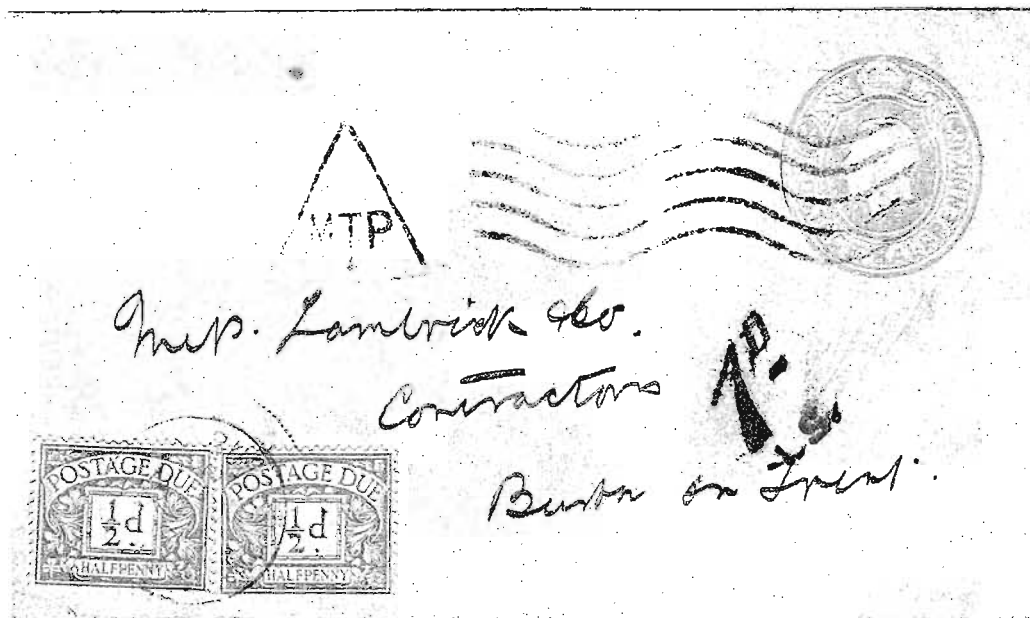 MTP
Mess. Lambrick & Co.
Contractors
1D.
Burton on Trent.
POSTAGE DUE
½d
HALFPENNY
POSTAGE DUE
½d
HALFPENNY